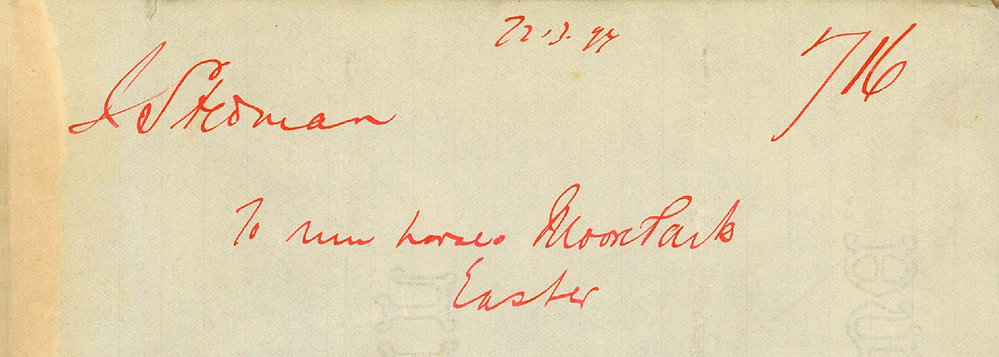 22.3.97
716
J Stedman
To run horses Moore Park
Easter